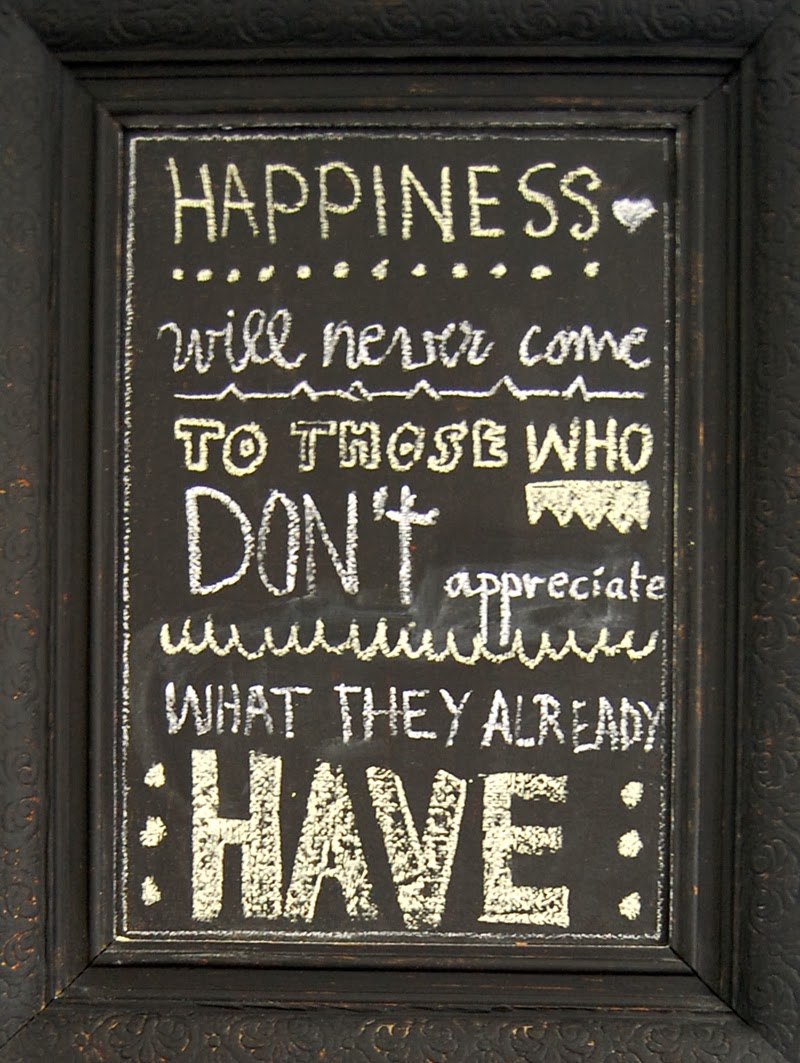 HAPPINESS
will never come
TO THOSE WHO
DON't appreciate
WHAT THEY ALREADY
HAVE